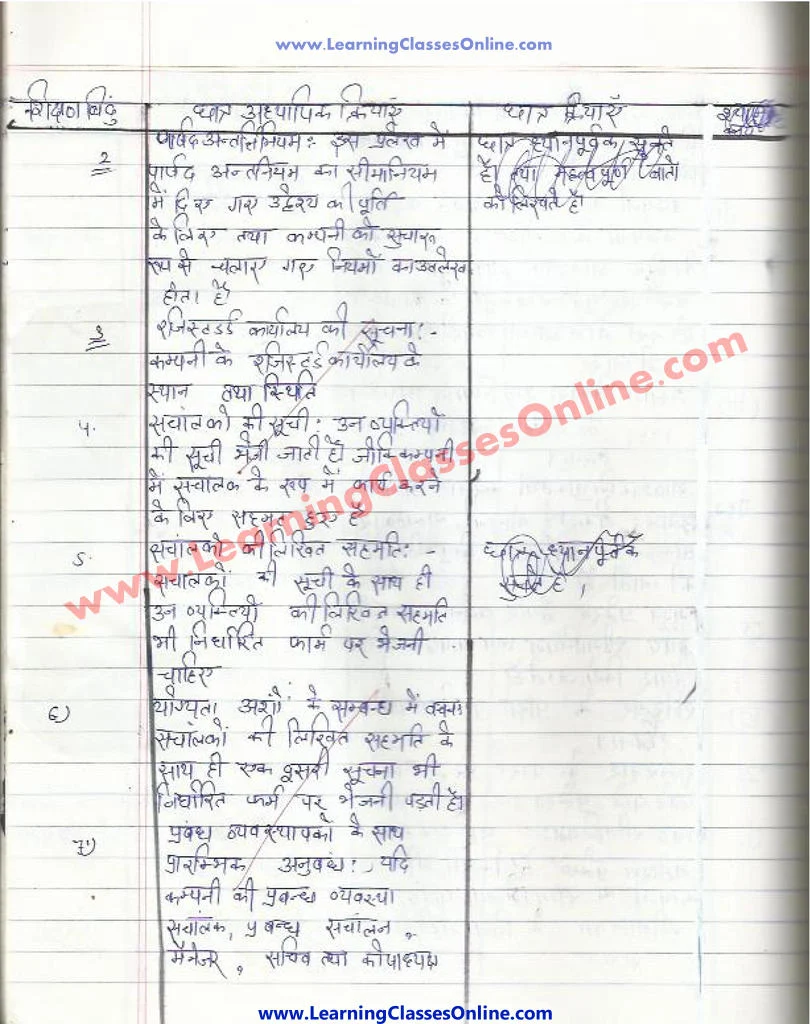 www.LearningClassesOnline.com
शिक्षण बिंदु छात्र अध्यापिक क्रियाएँ छात्र क्रियाएँ
पार्षद अन्तर्नियम:- इस प्रलेख में छात्र ध्यानपूर्वक सुनते
2 पार्षद अन्तनियम का सीमानियम है। तथा महत्वपूर्ण बातो
में दिए गए उद्देश्य की पूर्ति को लिखते है।
के लिए तथा कम्पनी को सुचारू
रूप से चलाए गए नियमों का उल्लेख
होता है।
3 रजिस्टर्ड कार्यालय की सूचना:-
कम्पनी के रजिस्टर्ड कार्यालय के
स्थान तथा स्थिति
4. सचांलको की सूची: उन व्यक्तियों
की सूची भेजी जाती है। जोकि कम्पनी
में सचांलक के रूप में कार्य करने
के लिए सहमत हुए है
5. सचांलको की लिखित सहमति:- छात्र ध्यानपूर्वक
सचांलकों की सूची के साथ ही सुनते है,
उन व्यक्तियों की लिखित सहमति
भी निर्धारित फार्म पर भेजनी
चाहिए
6) योग्यता अशों के सम्बन्ध में
सचांलकों की लिखित सहमति के
साथ ही एक दूसरी सूचना भी
निर्धारित फर्म पर भेजनी पड़ती है।
7) प्रबंध व्यवस्थापको के साथ
प्रारम्भिक अनुबधं:, यदि
कम्पनी की प्रबन्ध व्यवस्था
सचांलक, प्रबन्ध सचांलन,
मैनेजर, सचिव तथा कोषाध्यक्ष
www.LearningClassesOnline.com
www.LearningClassesOnline.com